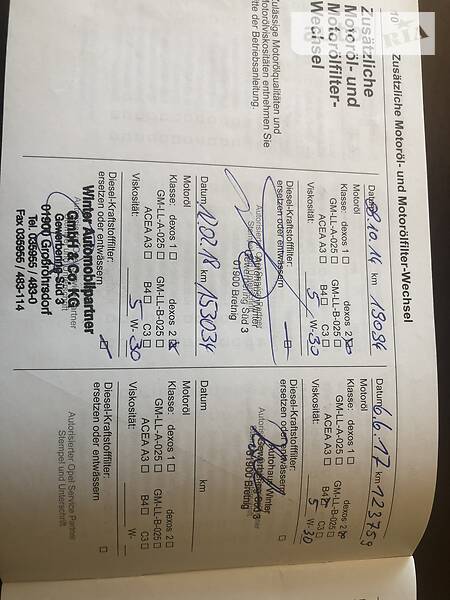 10
Zusätzliche Motoröl- und Motorölfilter-Wechsel
Zusätzliche
Motoröl- und
Motorölfilter-
Wechsel
Zulässige Motorölqualitäten und
Motorölviskositäten entnehmen Sie
bitte der Betriebsanleitung.
Datum 08.10.14 km 19094
Motoröl
Klasse: dexos 1 dexos 2
GM-LL-A-025 GM-LL-B-025
ACEA A3 B4 C3
Viskosität: 5 W-30
Diesel-Kraftstofffilter:
ersetzen oder entwässern
Autorisierter Opel Service Partner
Stempel und Unterschrift
Autohaus Winter
Gewerbering Süd 3
01900 Bretnig
Datum 6.6.17 km 123759
Motoröl
Klasse: dexos 1 dexos 2
GM-LL-A-025 GM-LL-B-025
ACEA A3 B4 C3
Viskosität: 5 W-30
Diesel-Kraftstofffilter:
ersetzen oder entwässern
Autohaus Winter
Gewerbering Süd 3
01900 Bretnig
Datum 12.02.18 km 153034
Motoröl
Klasse: dexos 1 dexos 2
GM-LL-A-025 GM-LL-B-025
ACEA A3 B4 C3
Viskosität: 5 W-30
Diesel-Kraftstofffilter:
ersetzen oder entwässern
Winter Automobilpartner
GmbH & Co. KG
Gewerbering Süd 3
01900 Großröhrsdorf
Tel. 035955 / 483-0
Fax 035955 / 483-114
Datum km
Motoröl
Klasse: dexos 1 dexos 2
GM-LL-A-025 GM-LL-B-025
ACEA A3 B4 C3
Viskosität: W-
Diesel-Kraftstofffilter:
ersetzen oder entwässern
Autorisierter Opel Service Partner
Stempel und Unterschrift
RIA